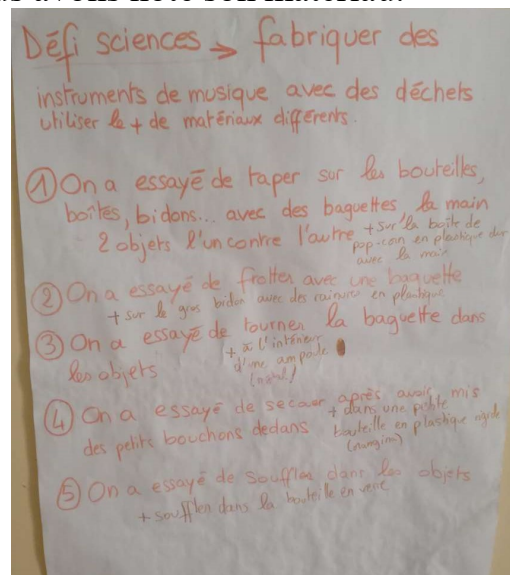 Défi sciences → fabriquer des
instruments de musique avec des déchets
utiliser le + de matériaux différents.
① On a essayé de taper sur les bouteilles,
boîtes, bidons... avec des baguettes la main
2 objets l'un contre l'autre + sur la boîte de
pop-coin en plastique dur
avec la main
② On a essayé de frotter avec une baguette
+ sur le gros bidon avec des rainures en plastique
③ On a essayé de tourner la baguette dans
les objets + à l'intérieur
d'une ampoule
(métal)
④ On a essayé de secouer après avoir mis
des petits bouchons dedans + dans une petite
bouteille en plastique rigide
⑤ On a essayé de souffler dans les objets
+ souffler dans la bouteille en verre